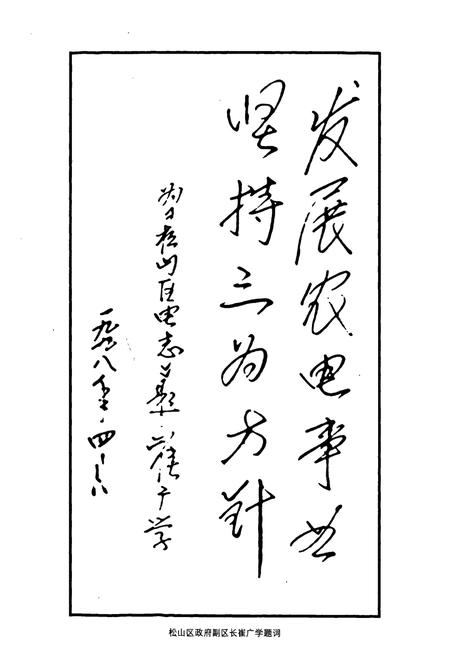 发展农电事业
坚持三为方针
为松山区电志题 崔广学
一九九八年·四·十八
松山区政府副区长崔广学题词